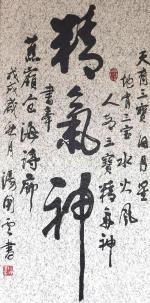 天有三寶日月星
地有三寶水火風
人有三寶精氣神
精氣神
書奉
蕉嶺仝海詩廊
戊戌歲
月湯國雲書